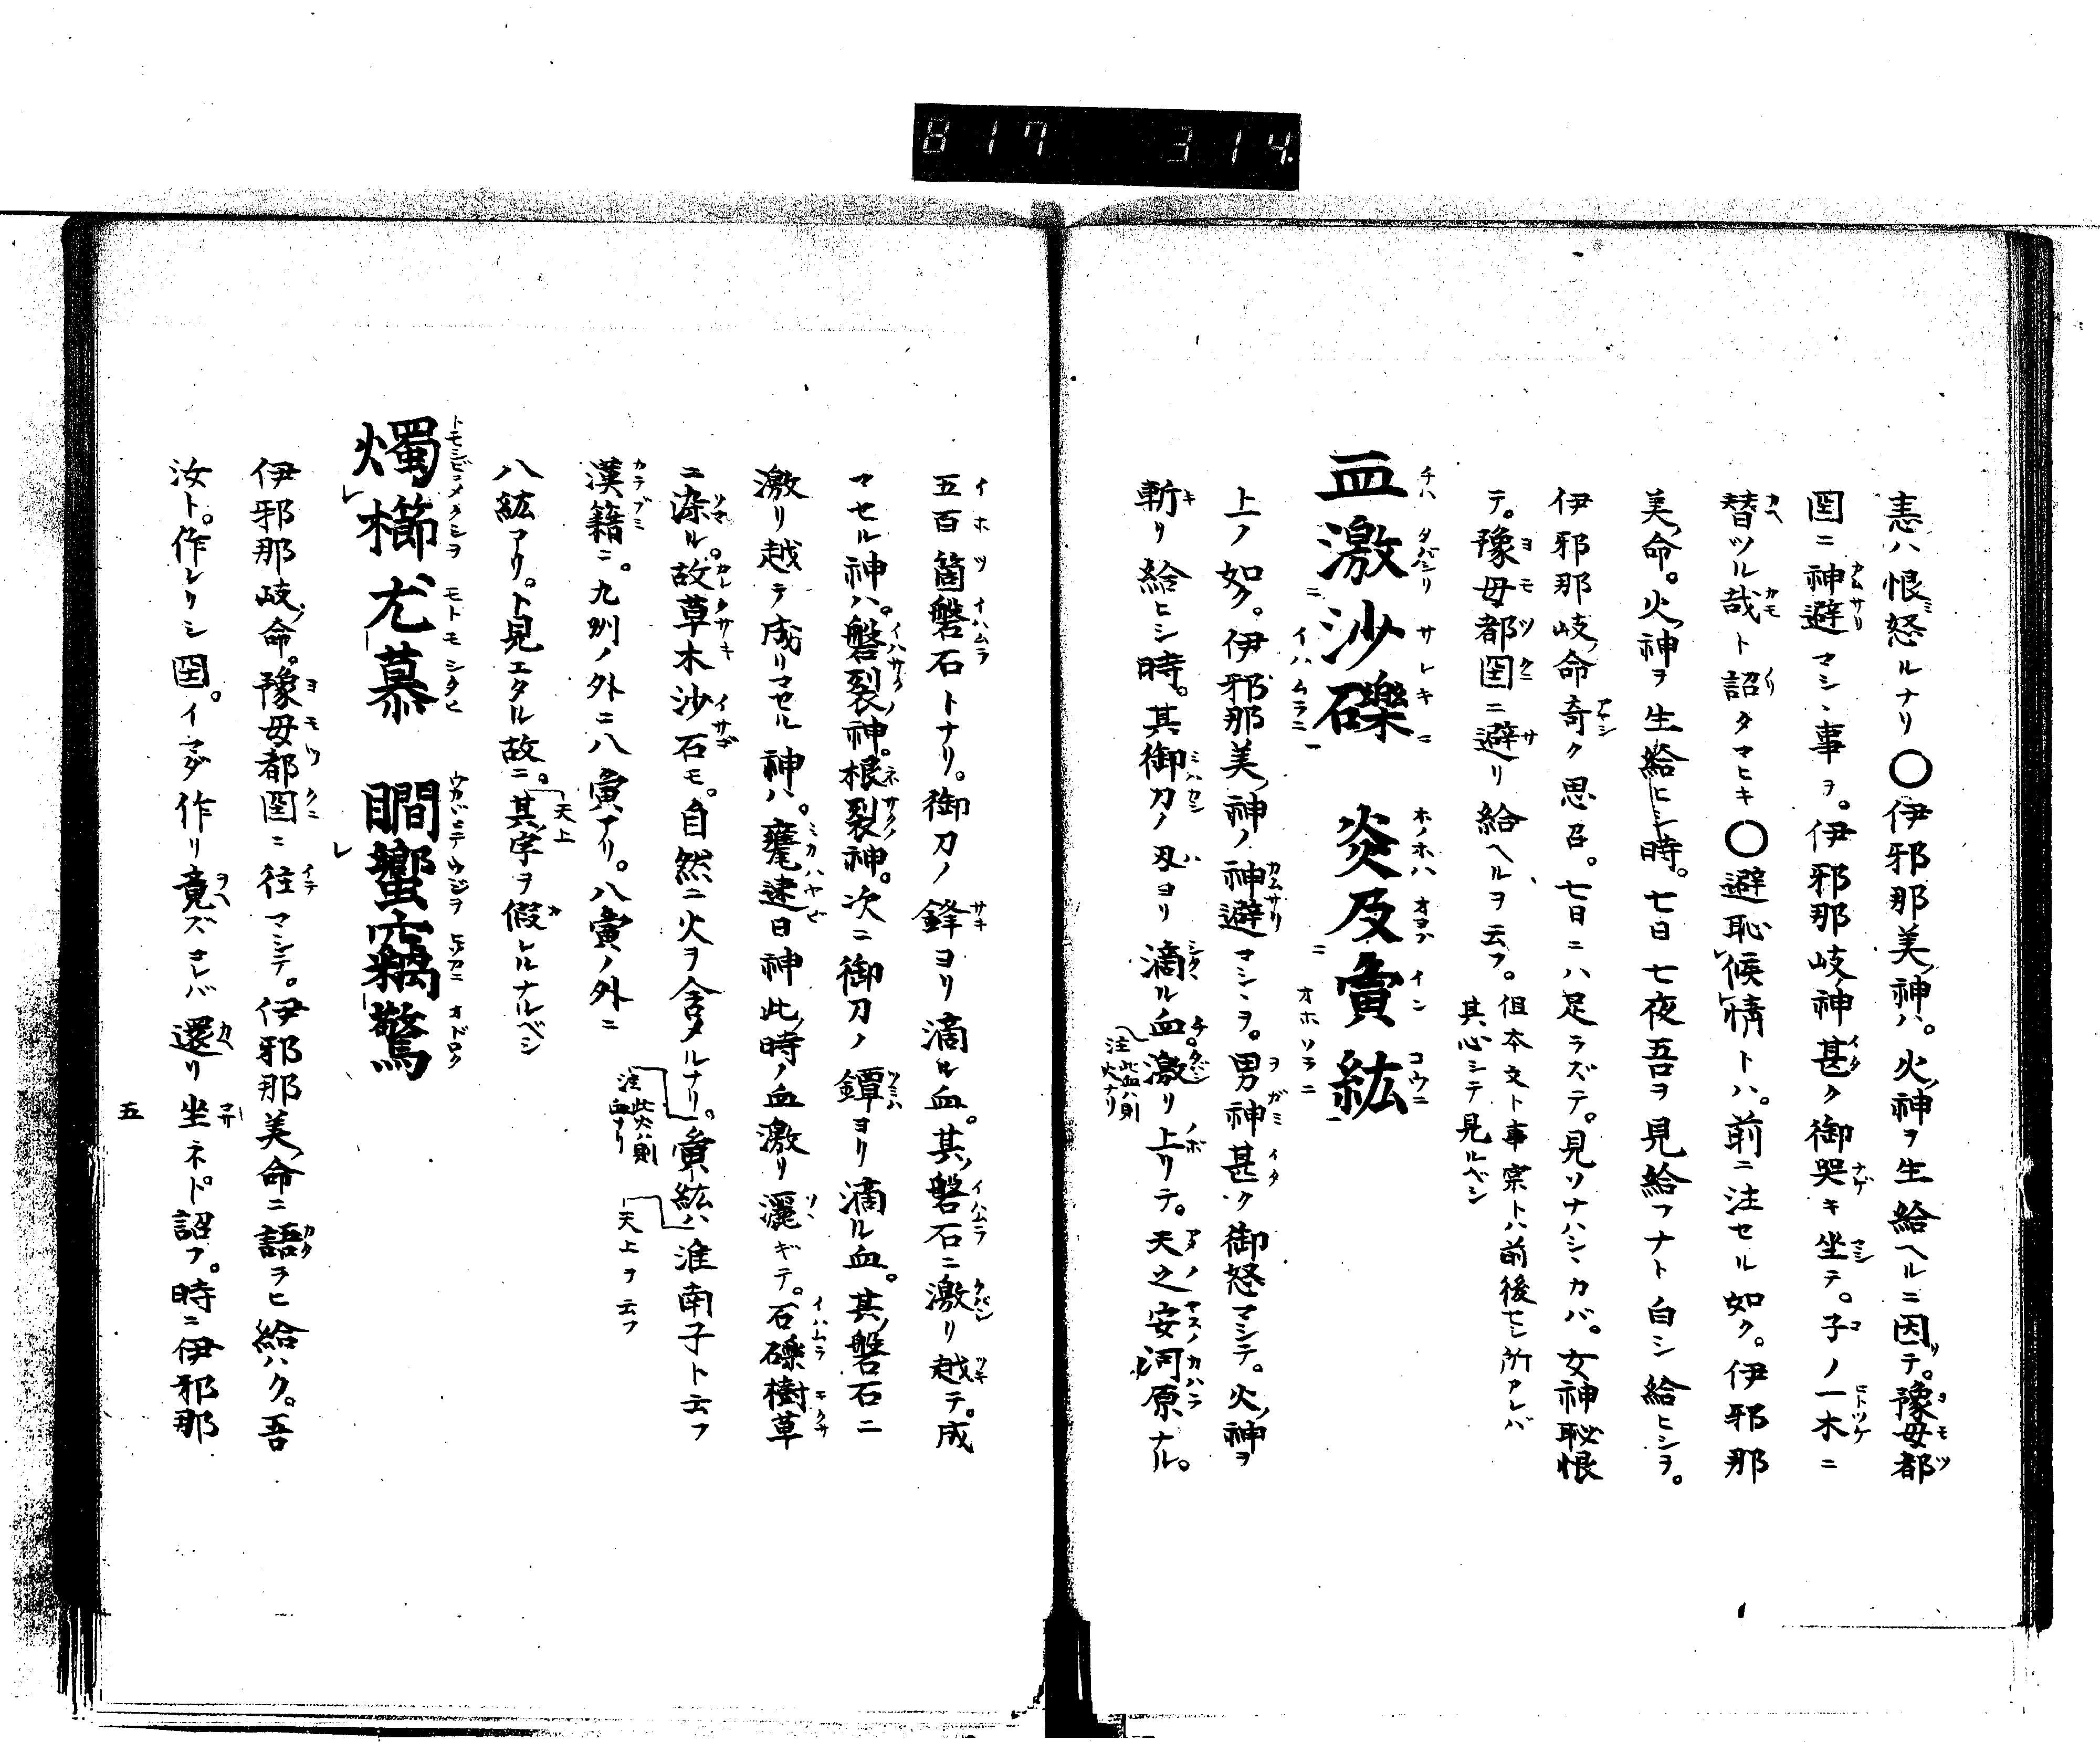 817 314.
恚ハ恨ミ怒ルナリ○伊邪那美ノ神ハ。火ノ神ヲ生給ヘルニ因リテ。豫母都
国ニ神避マシヽ事ヲ。伊邪那岐ノ神甚ク御哭キ坐テ。子ノ一木ニ
替ツル哉ト詔タマヒキ○避恥候情トハ。前ニ注セル如ク。伊邪那
美ノ命。火ノ神ヲ生給ヒシ時。七日七夜吾ヲ見給フナト白シ給ヒシヲ。
伊邪那岐ノ命奇ク思召。七日ニハ足ラズテ。見ソナハシヽカバ。女神恥恨
テ。豫母都国ニ避リ給ヘルヲ云フ。但本文ト事宗トハ前後セシ所アレバ
其心シテ見ルベシ
血激沙礫 炎及夤紘
上ノ如ク。伊邪那美ノ神ノ神避マシヽヲ。男神甚ク御怒マシテ。火ノ神ヲ
斬リ給ヒシ時。其御刀ノ刄ヨリ滴ル血激リ上リテ。天之安河原ナル。
注此血ハ則
火ナリ
五百箇磐石トナリ。御刀ノ鋒ヨリ滴ル血。其ノ磐石ニ激リ越テ。成
マセル神ハ。磐裂ノ神。根裂ノ神。次ニ御刀ノ鐔ヨリ滴ル血。其ノ磐石ニ
激リ越テ成リマセル神ハ。甕速日神此ノ時ノ血激リ灑ギテ。石礫樹草
ニ染ル。故草木沙石モ。自然ニ火ヲ含タルナリ。夤紘ハ淮南子ト云フ
注此火ハ則
血ナリ
天上ヲ云フ
漢籍ニ。九州ノ外ニ八夤アリ。八夤ノ外ニ
八紘アリ。ト見エタル故ニ。其ノ字ヲ假レルナルベシ
天上
燭櫛尤慕 瞷蠁竊驚
伊邪那岐ノ命。豫母都国ニ往マシテ。伊邪那美ノ命ニ語ラヒ給ハク。吾
汝ト。作レリシ国。イマダ作リ竟ズコレバ還リ坐ネト詔フ。時ニ伊邪那
五